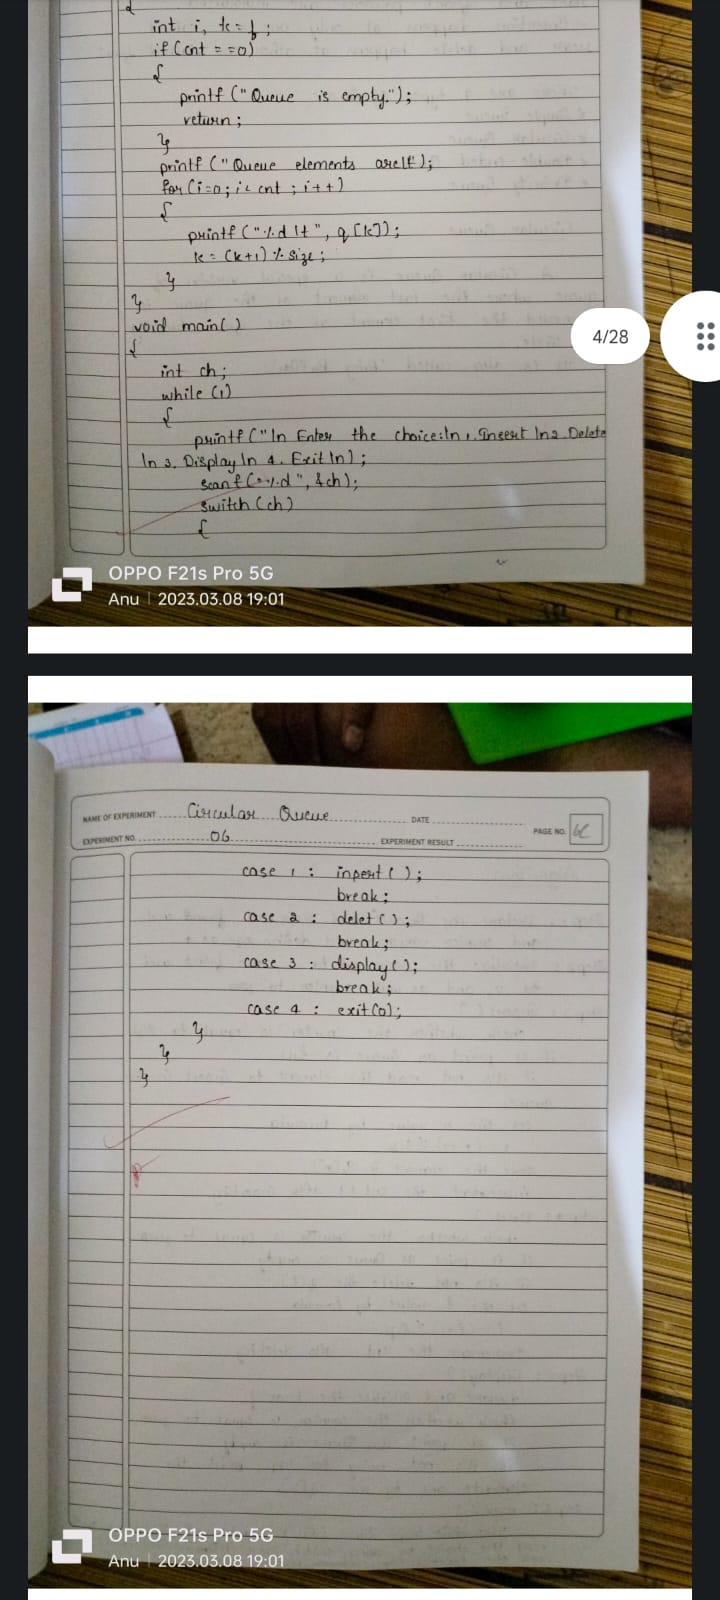 {
int i, k = f;
if (cnt = =0)
{
printf ("Queue is empty.");
return;
}
printf ("Queue elements are\t");
for (i=0; i< cnt ; i++)
{
printf ("%d \t", q[k]);
k = (k+1) % size;
}
}
void main( )
4/28
{
int ch;
while (1)
{
printf ("\n Enter the choice:\n 1. Insert \n2. Delete
\n 3. Display \n 4. Exit \n);
scanf ("%d", &ch);
switch (ch)
{
OPPO F21s Pro 5G
Anu | 2023.03.08 19:01
NAME OF EXPERIMENT Circular Queue DATE
EXPERIMENT NO. 06 EXPERIMENT RESULT PAGE NO.
case 1 : insert ( );
break;
case 2 : delet ( );
break;
case 3 : display( );
break;
case 4 : exit(0);
}
}
}
OPPO F21s Pro 5G
Anu | 2023.03.08 19:01